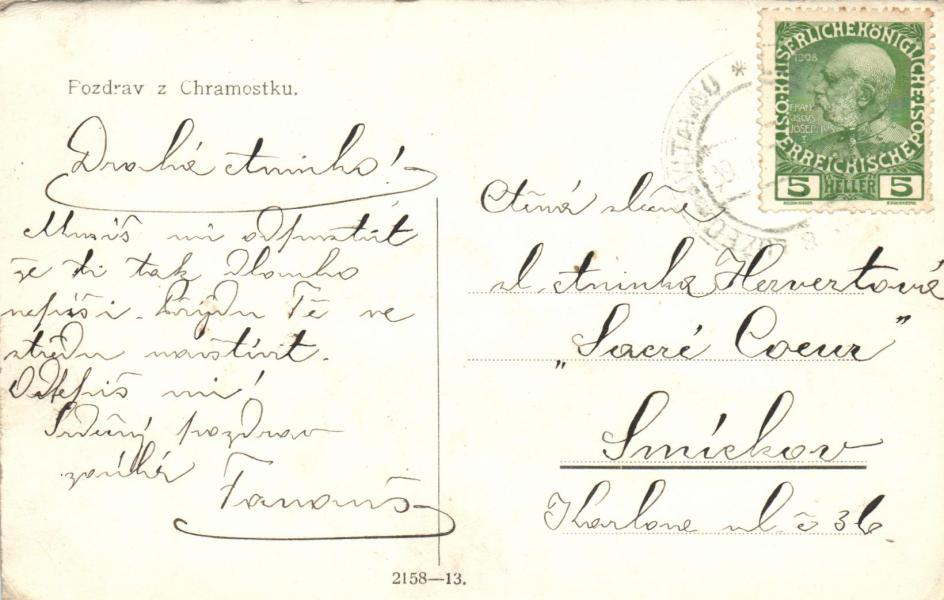 Pozdrav z Chramostku.
Drahá Aninko!
Musíš mi odpustit
že ti tak dlouho
nepíši. Přijdu Tě ve
středu navštívit.
Odepiš mi!
Srdečný pozdrav
zasílá
KAISERLICHE KÖNIGLICHE
ÖSTERREICHISCHE POST
1908
FRANCISCUS
JOSEPHUS
I
5 HELLER 5
Ctěná slečna
sl. Aninka Hervertová
„Sacré Coeur"
Smíchov
ul. č 36
2158—13.